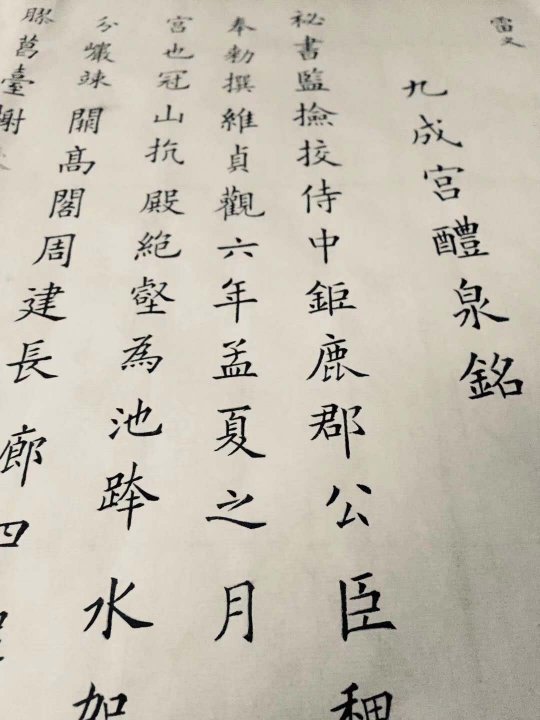 雷文
九成宮醴泉銘
秘書監撿挍侍中鉅鹿郡公臣
奉勅撰維貞觀六年孟夏之月
宮也冠山抗殿絕壑為池跨水
分巖竦闕高閣周建長廊四
膠葛臺榭